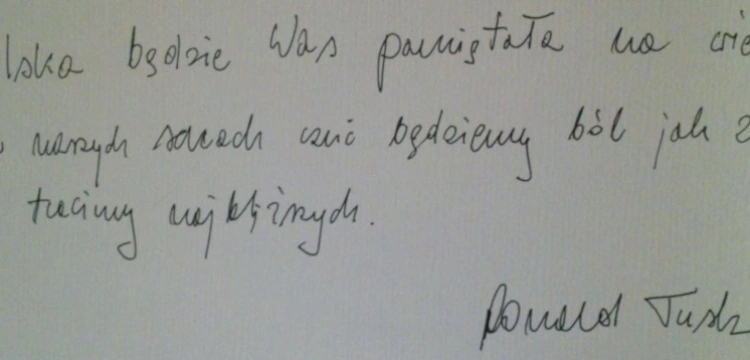 lska będzie Was pamiętała na wie
w naszych sercach czuć będziemy ból jak z
tracimy najbliższych.
Donald Tusk